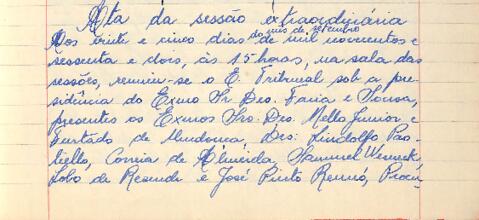 Ata da sessão extraordinária
Aos vinte e cinco dias do mês de setembro de mil novecentos e
sessenta e dois, às 15 horas, na sala das
sessões, reuniu-se o E. Tribunal sob a pre-
sidência do Exmo Sr. Des. Faria e Sousa,
presentes os Exmos Srs. Des. Mello Junior e
Furtado de Mendonça. Drs: Lindolfo Pao-
liello, Correia de Almeida, Sammuel Werneck,
Lobo de Resende e José Pinto Rennó, Procu-